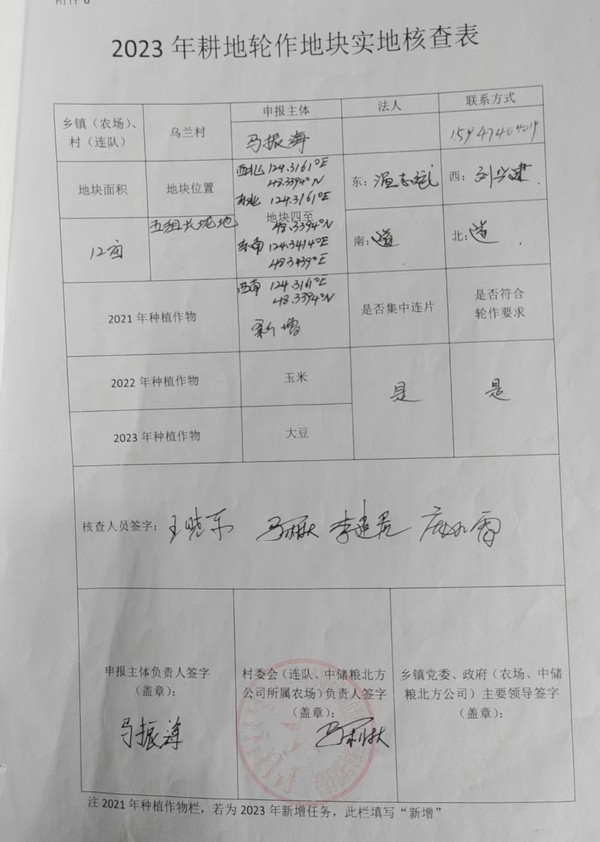 附件 6
2023 年耕地轮作地块实地核查表
乡镇（农场）、
村（连队）
乌兰村
申报主体
法人
联系方式
马振海
15947404019
地块面积
地块位置
地块四至
西北 124.3161°E
48.3394°N
东北 124.3161°E
48.3394°N
东南 124.3414°E
48.3439°E
西南 124.3161°E
48.3394°N
东：温志远
西：刘兴建
12亩
五组长垅地
南：道
北：道
2021 年种植作物
新增
是否集中连片
是否符合
轮作要求
2022 年种植作物
玉米
是
是
2023 年种植作物
大豆
核查人员签字：王晓东
申报主体负责人签字
（盖章）：
马振海
村委会（连队、中储粮北方
公司所属农场）负责人签字
（盖章）：
乡镇党委、政府（农场、中储
粮北方公司）主要领导签字
（盖章）：
注 2021 年种植作物栏，若为 2023 年新增任务，此栏填写“新增”